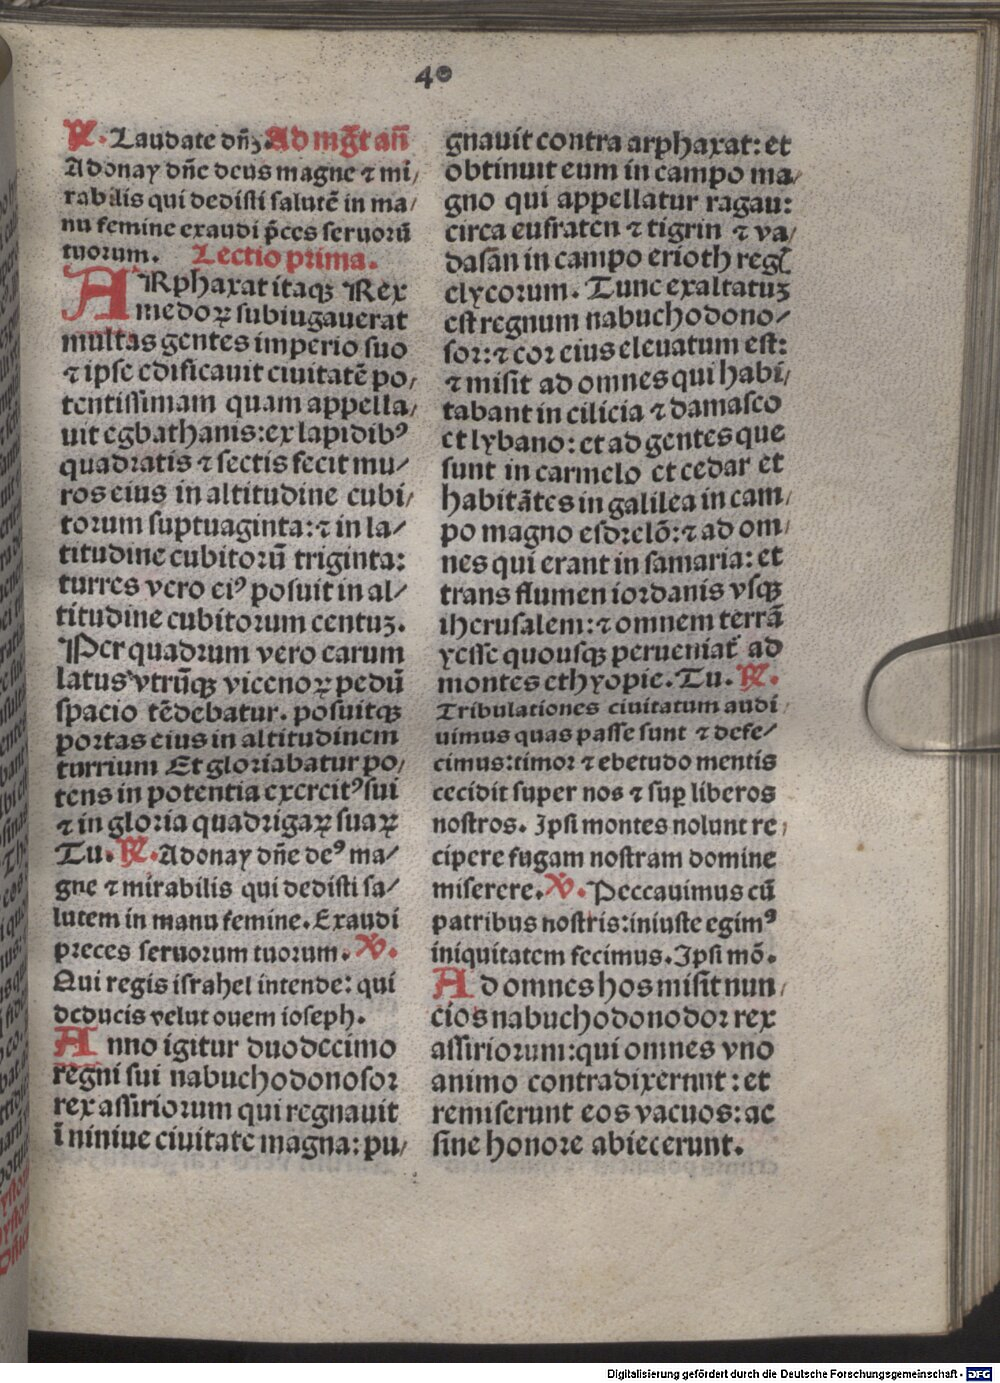 40
℟. Laudate dn̄ꝫ. Ad mg̅t an̄
Adonay dn̄e deus magne ⁊ mi/
rabilis qui dedisti salutē in ma/
nu femine exaudi p̄ces seruorū
tuorum. Lectio prima.
ARphaxat itaqꝫ Rex
medoꝝ subiugauerat
multas gentes imperio suo
⁊ ipse edificauit ciuitatē po/
tentissimam quam appella/
uit egbathanis: ex lapidibꝰ
quadratis ⁊ sectis fecit mu/
ros eius in altitudine cubi/
torum suptuaginta: ⁊ in la/
titudine cubitorū triginta:
turres vero eiꝰ posuit in al/
titudine cubitorum centuꝫ.
Per quadrum vero earum
latus vtrūqꝫ vicenoꝝ pedū
spacio tēdebatur. posuitqꝫ
portas eius in altitudinem
turrium Et gloriabatur po/
tens in potentia exercitꝰ sui
⁊ in gloria quadrigaꝝ suaꝝ
Tu. ℟. Adonay dn̄e deꝰ ma/
gne ⁊ mirabilis qui dedisti sa/
lutem in manu femine. Exaudi
preces seruorum tuorum. ℣.
Qui regis israhel intende: qui
deducis velut ouem ioseph.
Anno igitur duodecimo
regni sui nabuchodonosor
rex assiriorum qui regnauit
ī niniue ciuitate magna: pu/
gnauit contra arphaxat: et
obtinuit eum in campo ma/
gno qui appellatur ragau:
circa eufraten ⁊ tigrin ⁊ va/
dasān in campo erioth reg̅
elycorum. Tunc exaltatuꝫ
est regnum nabuchodono/
sor: ⁊ cor eius eleuatum est:
⁊ misit ad omnes qui habi/
tabant in cilicia ⁊ damasco
et lybano: et ad gentes que
sunt in carmelo et cedar et
habitātes in galilea in cam/
po magno esdrelō: ⁊ ad om/
nes qui erant in samaria: et
trans flumen iordanis vsqꝫ
iherusalem: ⁊ omnem terrā
yesse quousqꝫ perueniat̄ ad
montes ethyopie. Tu. ℟.
Tribulationes ciuitatum audi/
uimus quas passe sunt ⁊ defe/
cimus: timor ⁊ ebetudo mentis
cecidit super nos ⁊ suꝑ liberos
nostros. Ipsi montes nolunt re/
cipere fugam nostram domine
miserere. ℣. Peccauimus cū
patribus nostris: iniuste egimꝰ
iniquitatem fecimus. Ipsi mō.
Ad omnes hos misit nun/
cios nabuchodonodor rex
assiriorum: qui omnes vno
animo contradixernnt: et
remiserunt eos vacuos: ac
sine honore abiecerunt.
Digitalisierung gefördert durch die Deutsche Forschungsgemeinschaft - DFG